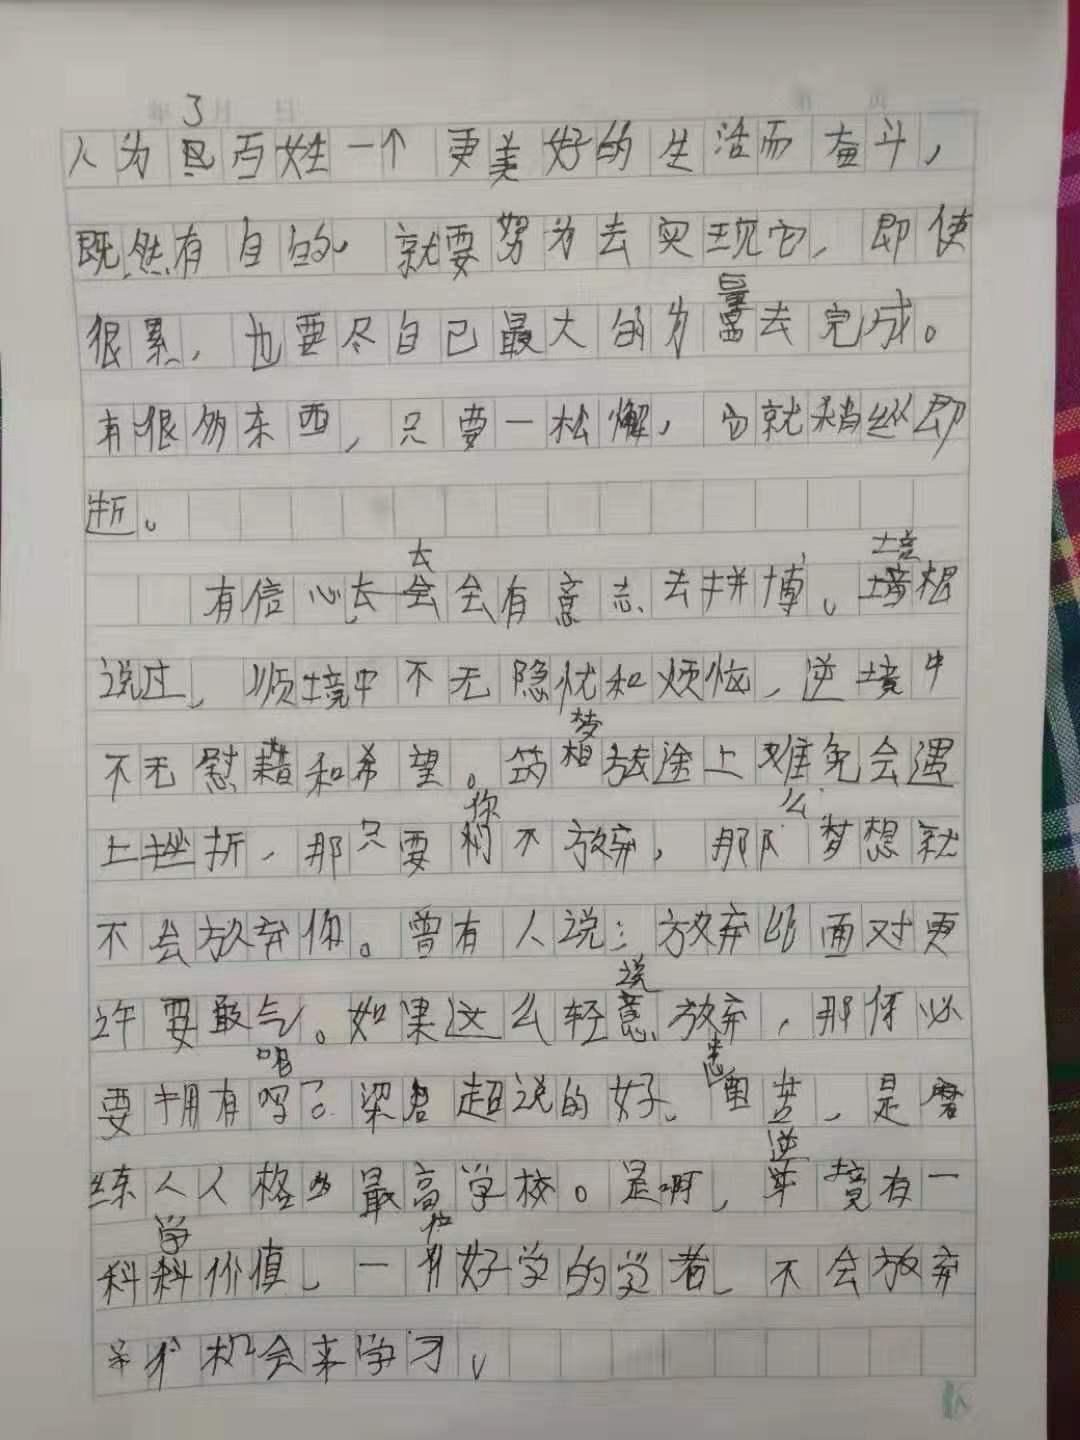 人为了百姓一个更美好的生活而奋斗,
既然有自的,就要努力去实现它,即使
很累,也要尽自己最大的力量去完成。
有很多东西,只要一松懈,它就稍纵即
逝。
有信心去会有意志去拼博。培根
说过,顺境中不无隐忧和烦恼,逆境中
不无慰藉和希望。筑梦途上难免会遇
上挫折,那只要你不放弃,那么梦想就
不会放弃你。曾有人说:放弃比面对更
需要敢气。如果这么轻说放弃,那何必
要拥有呢?梁启超说的好。患苦,是磨
练人人格的最高学校。是啊,逆境有一
科学价值,一位好学的学者,不会放弃
机会来学习。